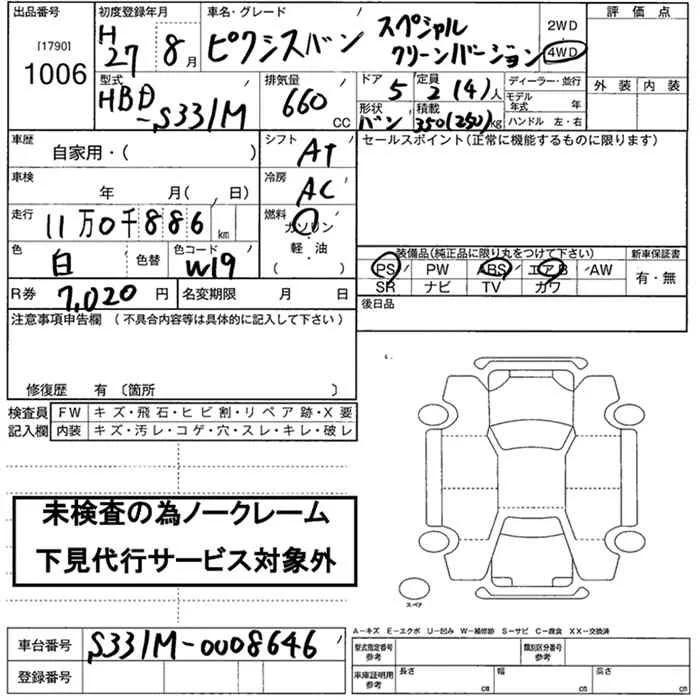 出品番号 初度登録年月 車名・グレード 評価点
[1790] 1006 H27 8月 ピクシスバン スペシャル クリーンバージョン 2WD 4WD
型式 HBD-S331M 排気量 660 CC ドア 5 定員 2(4)人 ディーラー・並行 外装 内装
形状 バン 積載 350(250)kg モデル年式 年 ハンドル 左・右
車歴 自家用・( ) シフト AT セールスポイント(正常に機能するものに限ります)
車検 年 月( , 日) 冷房 AC
走行 11万0千886km 燃料 ガソリン 軽・油 ( )
色 白 色替 色コード W19
装備品(純正品に限り丸をつけて下さい) 新車保証書
PS PW ABS エアB AW 有・無
SR ナビ TV カワ
R券 7,020円 名変期限 月 日 後日品
注意事項申告欄 (不具合内容等は具体的に記入して下さい)
修復歴 有 〔箇所 〕
検査員 FW キズ・飛石・ヒビ割・リペア跡・X要
記入欄 内装 キズ・汚レ・コゲ・穴・スレ・キレ・破レ
未検査の為ノークレーム
下見代行サービス対象外
スペア
A-キズ E-エクボ U-凹み W-補修跡 S-サビ C-腐食 XX-交換済
車台番号 S331M-0008646
登録番号
型式指定番号 参考 類別区分番号 参考
車庫証明用 参考 長さ cm 幅 cm 高さ cm